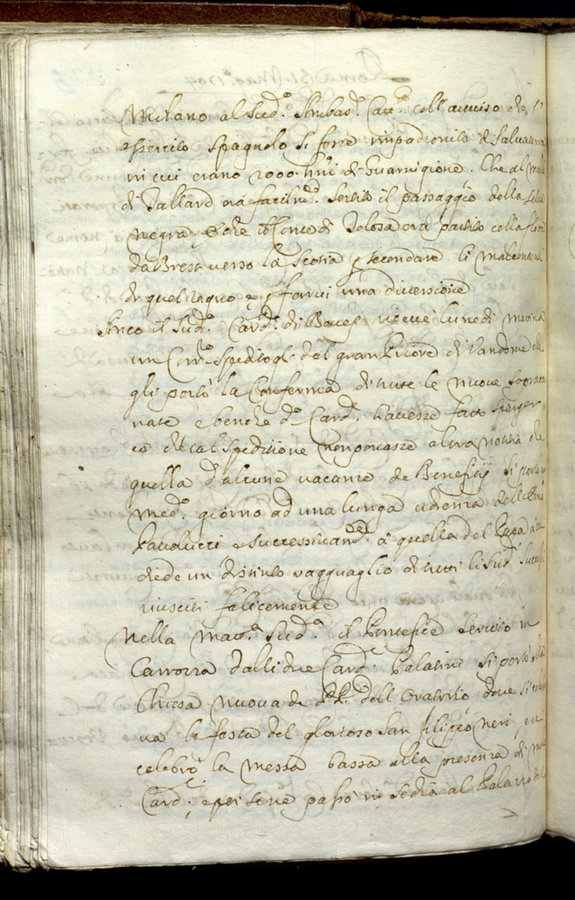 Milano al Sud.º Ambad.r Ces.º coll'avviso che l'
esercito Spagnolo si fosse impadronito di Salvaterra
in cui erano 2000 h.ni di Guarnigione. Che al
di Tallard era facilm.te sortito il passaggio della Selva
negra, e che il Conte di Tolosa era partito colla flotta
da Brest verso la Scotia p secondare li
di quel regno e p farvi una diversione
Anco il Sud.º Card.l di lunedi matina
un Corr.e speditogli dal gran Priore di Vandome che
gli portò la Conferma di tutte le nuove
nate e benche d.º Card.l havesse fatto
che tal speditione non portasse altra notitia che
quella d'alcune vacanze de Beneficij si portò
med.º giorno ad una lunga udienza dell'
Paulucci e successivam.te à quella del Papa à cui
diede un distinto ragguaglio di tutti li Sud.i
riusciti felicemente
Nella mat.a Sud.a il Pontefice servito in
Carrozza dalli due Card.i Palatini si portò alla
Chiesa nuova de PP. dell'Oratorio dove si
va la festa del glorioso San Filippo Neri, e vi
celebrò la messa bassa alla presenza di
Card.i, e poi sene passò in sedia al Palazzo